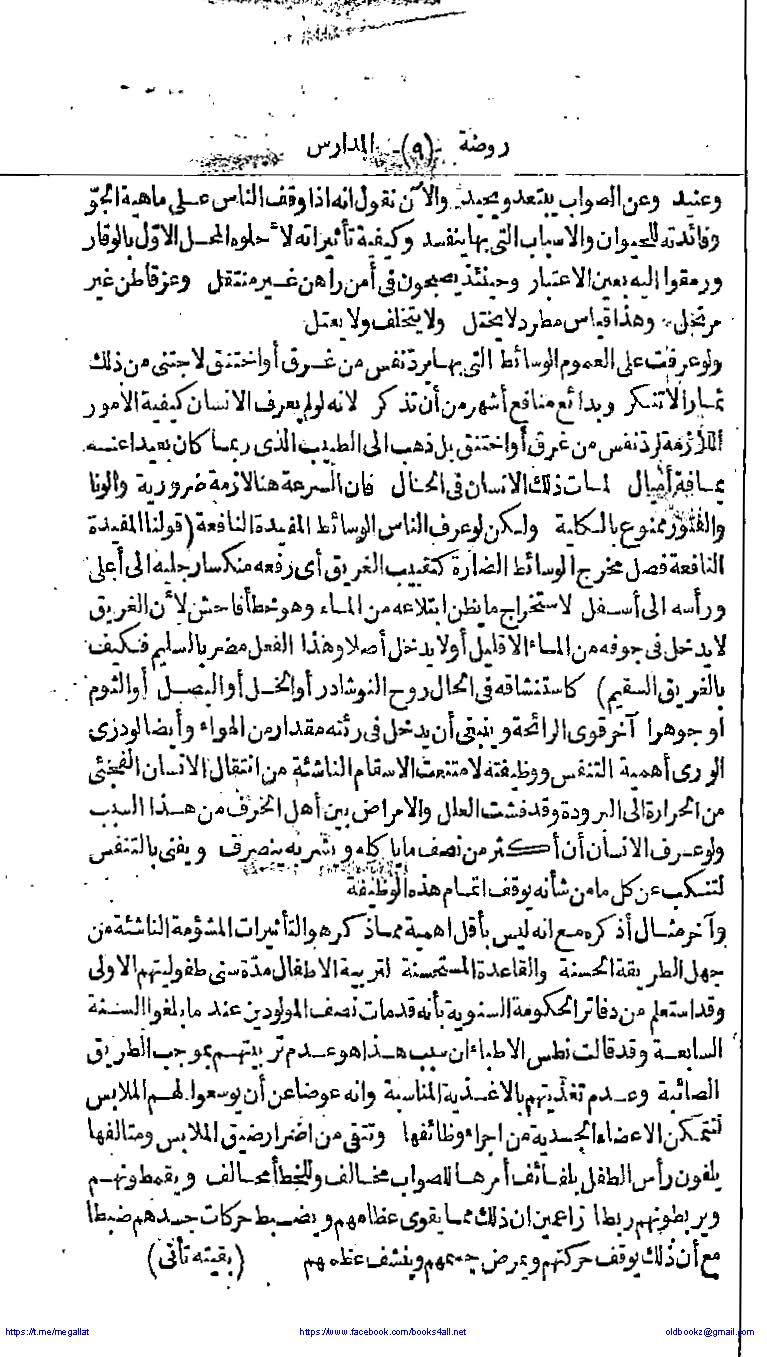 روضة -(٩)- المدارس
وعنيد وعن الصواب يبتعد ويحيد والآن نقول انه اذا وقف الناس على ماهية الجوّ
وفائدته للحيوان والاسباب التى بها ينفسد وكيفية تأثيراته لأحلوه المحل الاوّل بالوقار
ورمقوا اليه بعين الاعتبار وحينئذ يصبحون فى أمن راهن غير منتقل وعز قاطن غير
مرتحل وهذا قياس مطرد لا يختل ولا يتخلف ولا يعتل
ولو عرفت على العموم الوسائط التى بها يرد نفس من غرق أو اختنق لاجتنى من ذلك
ثمار لا تنكر وبدائع منافع أشهر من أن تذكر لانه لو لم يعرف الانسان كيفية الأمور
اللازمة لرد نفس من غرق أو اختنق بل ذهب الى الطبيب الذى ربما كان بعيدا عنه
بمسافة أميال لمات ذلك الانسان فى الحال فان السرعة هنا لازمة ضرورية والونا
والفتور ممنوع بالكلية ولكن لو عرف الناس الوسائط المفيدة النافعة (قولنا المفيدة
النافعة فصل مخرج الوسائط الضارة كتغييب الغريق أى رفعه منكسا رجليه الى أعلى
ورأسه الى أسفل لاستخراج ما يظن ابتلاعه من الماء وهو خطأ فاحش لأن الغريق
لا يدخل فى جوفه من الماء الا قليل أو لا يدخل أصلا وهذا الفعل مضر بالسليم فكيف
بالغريق السقيم) كاستنشاقه فى الحال روح النوشادر أو الخل أو البصل أو الثوم
أو جوهرا آخر قوى الرائحة وينبغى أن يدخل فى رئته مقدار من الهواء وأيضا لو درى
الورى أهمية التنفس ووظيفته لامتنعت الاسقام الناشئة من انتقال الانسان الفجئى
من الحرارة الى البرودة وقد فشت العلل والامراض بين أهل الحرف من هذا السبب
ولو عرف الانسان أن أكثر من نصف ما يأكله ويشربه ينصرف ويفنى بالتنفس
لتنكب عن كل ما من شأنه يوقف اتمام هذه الوظيفة
وآخر مثال أذكره مع انه ليس بأقل اهمية مما ذكر هو التأثيرات المشؤمة الناشئة من
جهل الطريقة الحسنة والقاعدة المستحسنة لتربية الاطفال مدّة سنى طفوليتهم الاولى
وقد استعلم من دفاتر الحكومة السنوية بأنه قد مات نصف المولودين عند ما بلغوا السنة
السابعة وقد قالت نطس الاطباء ان سبب هذا هو عدم تربيتهم بموجب الطريق
الصائبة وعدم تغذيتهم بالاغذية المناسبة وانه عوضا عن أن يوسعوا لهم الملابس
لتتمكن الاعضاء الجسدية من اجراء وظائفها وتتقى من اضرار ضيق الملابس ومتالفها
يلفون رأس الطفل بلفائف أمرها للصواب مخالف وللخطأ محالف ويقمطونهم
ويربطونهم ربطا زاعمين ان ذلك مما يقوى عظامهم ويضبط حركات جسدهم ضبطا
مع أن ذلك يوقف حركتهم ويمرض جسمهم وينشف عظمهم (بقيته تأتى)
https://t.me/megallat
https://www.facebook.com/books4all.net
oldbookz@gmail.com